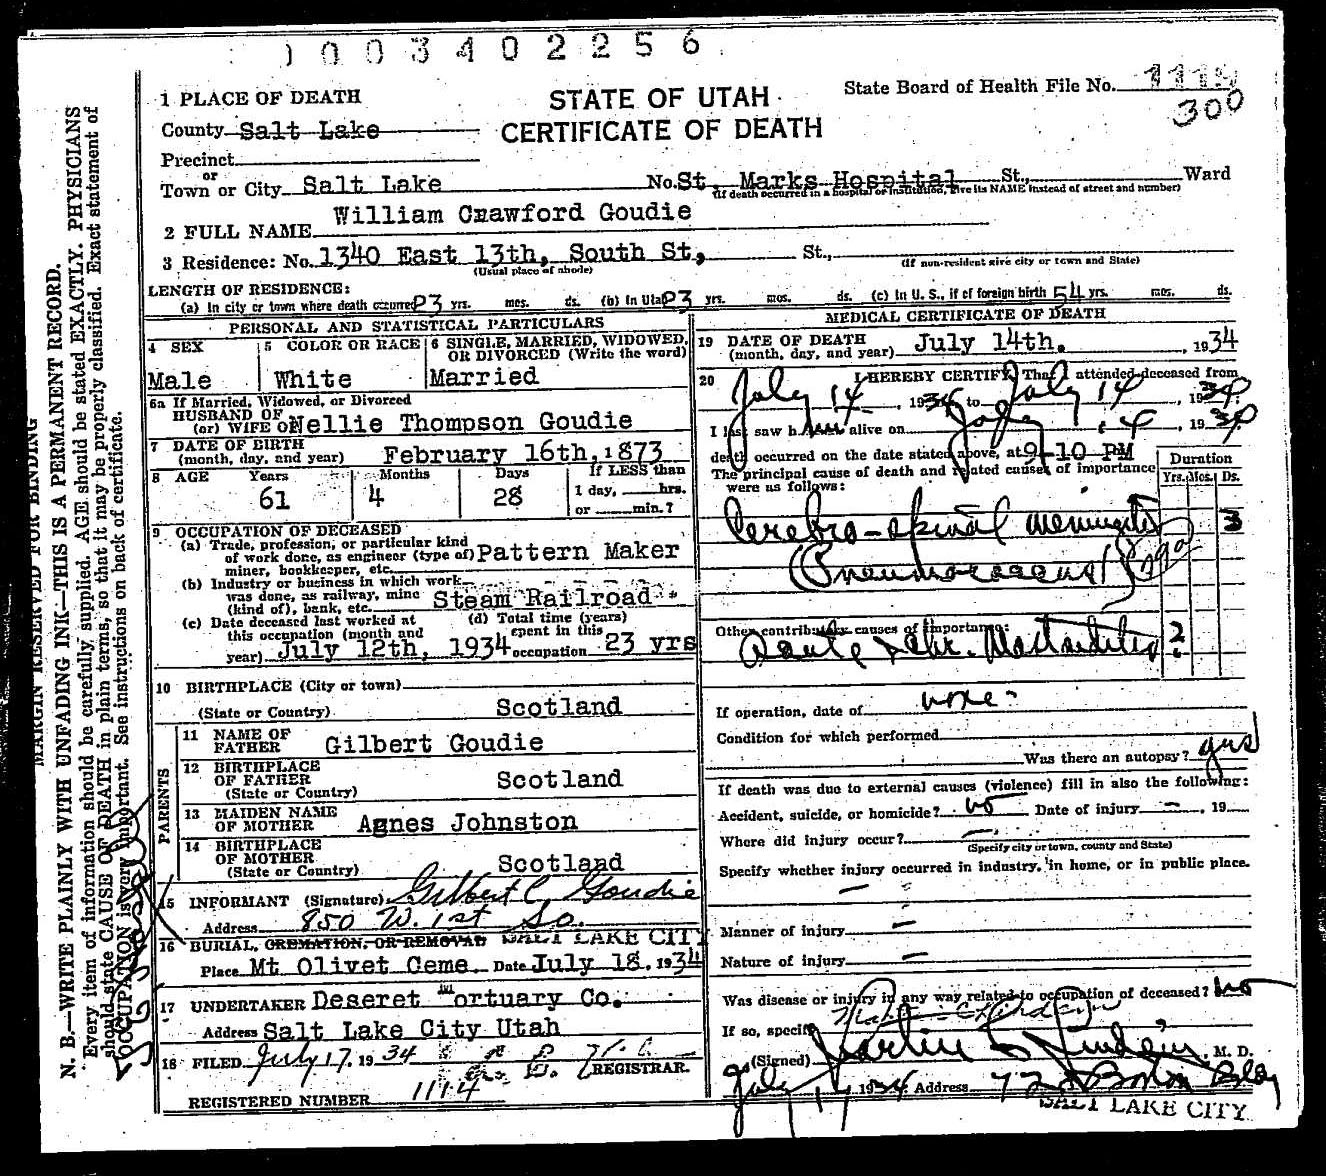 1003402256
1 PLACE OF DEATH
STATE OF UTAH
CERTIFICATE OF DEATH
State Board of Health File No. 1115
300
County Salt Lake
Precinct
or
Town or City Salt Lake No. St. Marks Hospital St., Ward
(If death occurred in a hospital or institution, give its NAME instead of street and number)
2 FULL NAME William Crawford Goudie
3 Residence: No. 1340 East 13th, South St, St.,
(Usual place of abode) (If non-resident give city or town and State)
LENGTH OF RESIDENCE:
(a) In city or town where death occurred 23 yrs. mos. ds. (b) In Utah 23 yrs. mos. ds. (c) In U. S., if of foreign birth 54 yrs. mos. ds.
PERSONAL AND STATISTICAL PARTICULARS
4 SEX
Male
5 COLOR OR RACE
White
6 SINGLE, MARRIED, WIDOWED,
OR DIVORCED (Write the word)
Married
6a If Married, Widowed, or Divorced
HUSBAND OF
(or) WIFE OF Nellie Thompson Goudie
7 DATE OF BIRTH
(month, day, and year) February 16th, 1873
8 AGE Years Months Days If LESS than
61 4 28 1 day, hrs.
or min.?
9 OCCUPATION OF DECEASED
(a) Trade, profession, or particular kind
of work done, as engineer (type of) Pattern Maker
miner, bookkeeper, etc.
(b) Industry or business in which work
was done, as railway, mine
(kind of), bank, etc. Steam Railroad
(c) Date deceased last worked at
this occupation (month and
year) July 12th, 1934
(d) Total time (years)
spent in this
occupation 23 yrs
10 BIRTHPLACE (City or town)
(State or Country) Scotland
PARENTS
11 NAME OF
FATHER Gilbert Goudie
12 BIRTHPLACE
OF FATHER Scotland
(State or Country)
13 MAIDEN NAME
OF MOTHER Agnes Johnston
14 BIRTHPLACE
OF MOTHER
(State or Country) Scotland
15 INFORMANT (Signature) Gilbert C. Goudie
Address 850 W. 1st So.
16 BURIAL, CREMATION, OR REMOVAL SALT LAKE CITY
Place Mt Olivet Ceme. Date July 18, 1934
17 UNDERTAKER Deseret Mortuary Co.
Address Salt Lake City Utah
18 FILED July 17, 1934
REGISTRAR.
REGISTERED NUMBER 1114
MEDICAL CERTIFICATE OF DEATH
19 DATE OF DEATH
(month, day, and year) July 14th, 1934
20 I HEREBY CERTIFY, That I attended deceased from
July 14, 1934 to July 14, 1934
I last saw him alive on July 14, 1934
death occurred on the date stated above, at 9-10 PM
The principal cause of death and related causes of importance
were as follows:
Duration
Yrs. Mos. Ds.
Cerebro-spinal meningitis 3
(Pneumococcus)
Other contributory causes of importance:
Acute & chr. Mastoiditis ?
If operation, date of none
Condition for which performed
Was there an autopsy? yes
If death was due to external causes (violence) fill in also the following:
Accident, suicide, or homicide? no Date of injury - 19
Where did injury occur? -
(Specify city or town, county and State)
Specify whether injury occurred in industry, in home, or in public place.
-
-
Manner of injury -
Nature of injury -
Was disease or injury in any way related to occupation of deceased? no
If so, specify
(Signed) M. D.
July 17 1934 Address Boston Bldg
SALT LAKE CITY
MARGIN RESERVED FOR BINDING
N. B.—WRITE PLAINLY WITH UNFADING INK—THIS IS A PERMANENT RECORD.
Every item of information should be carefully supplied. AGE should be stated EXACTLY. PHYSICIANS
should state CAUSE OF DEATH in plain terms, so that it may be properly classified. Exact statement of
OCCUPATION is very important. See instructions on back of certificate.